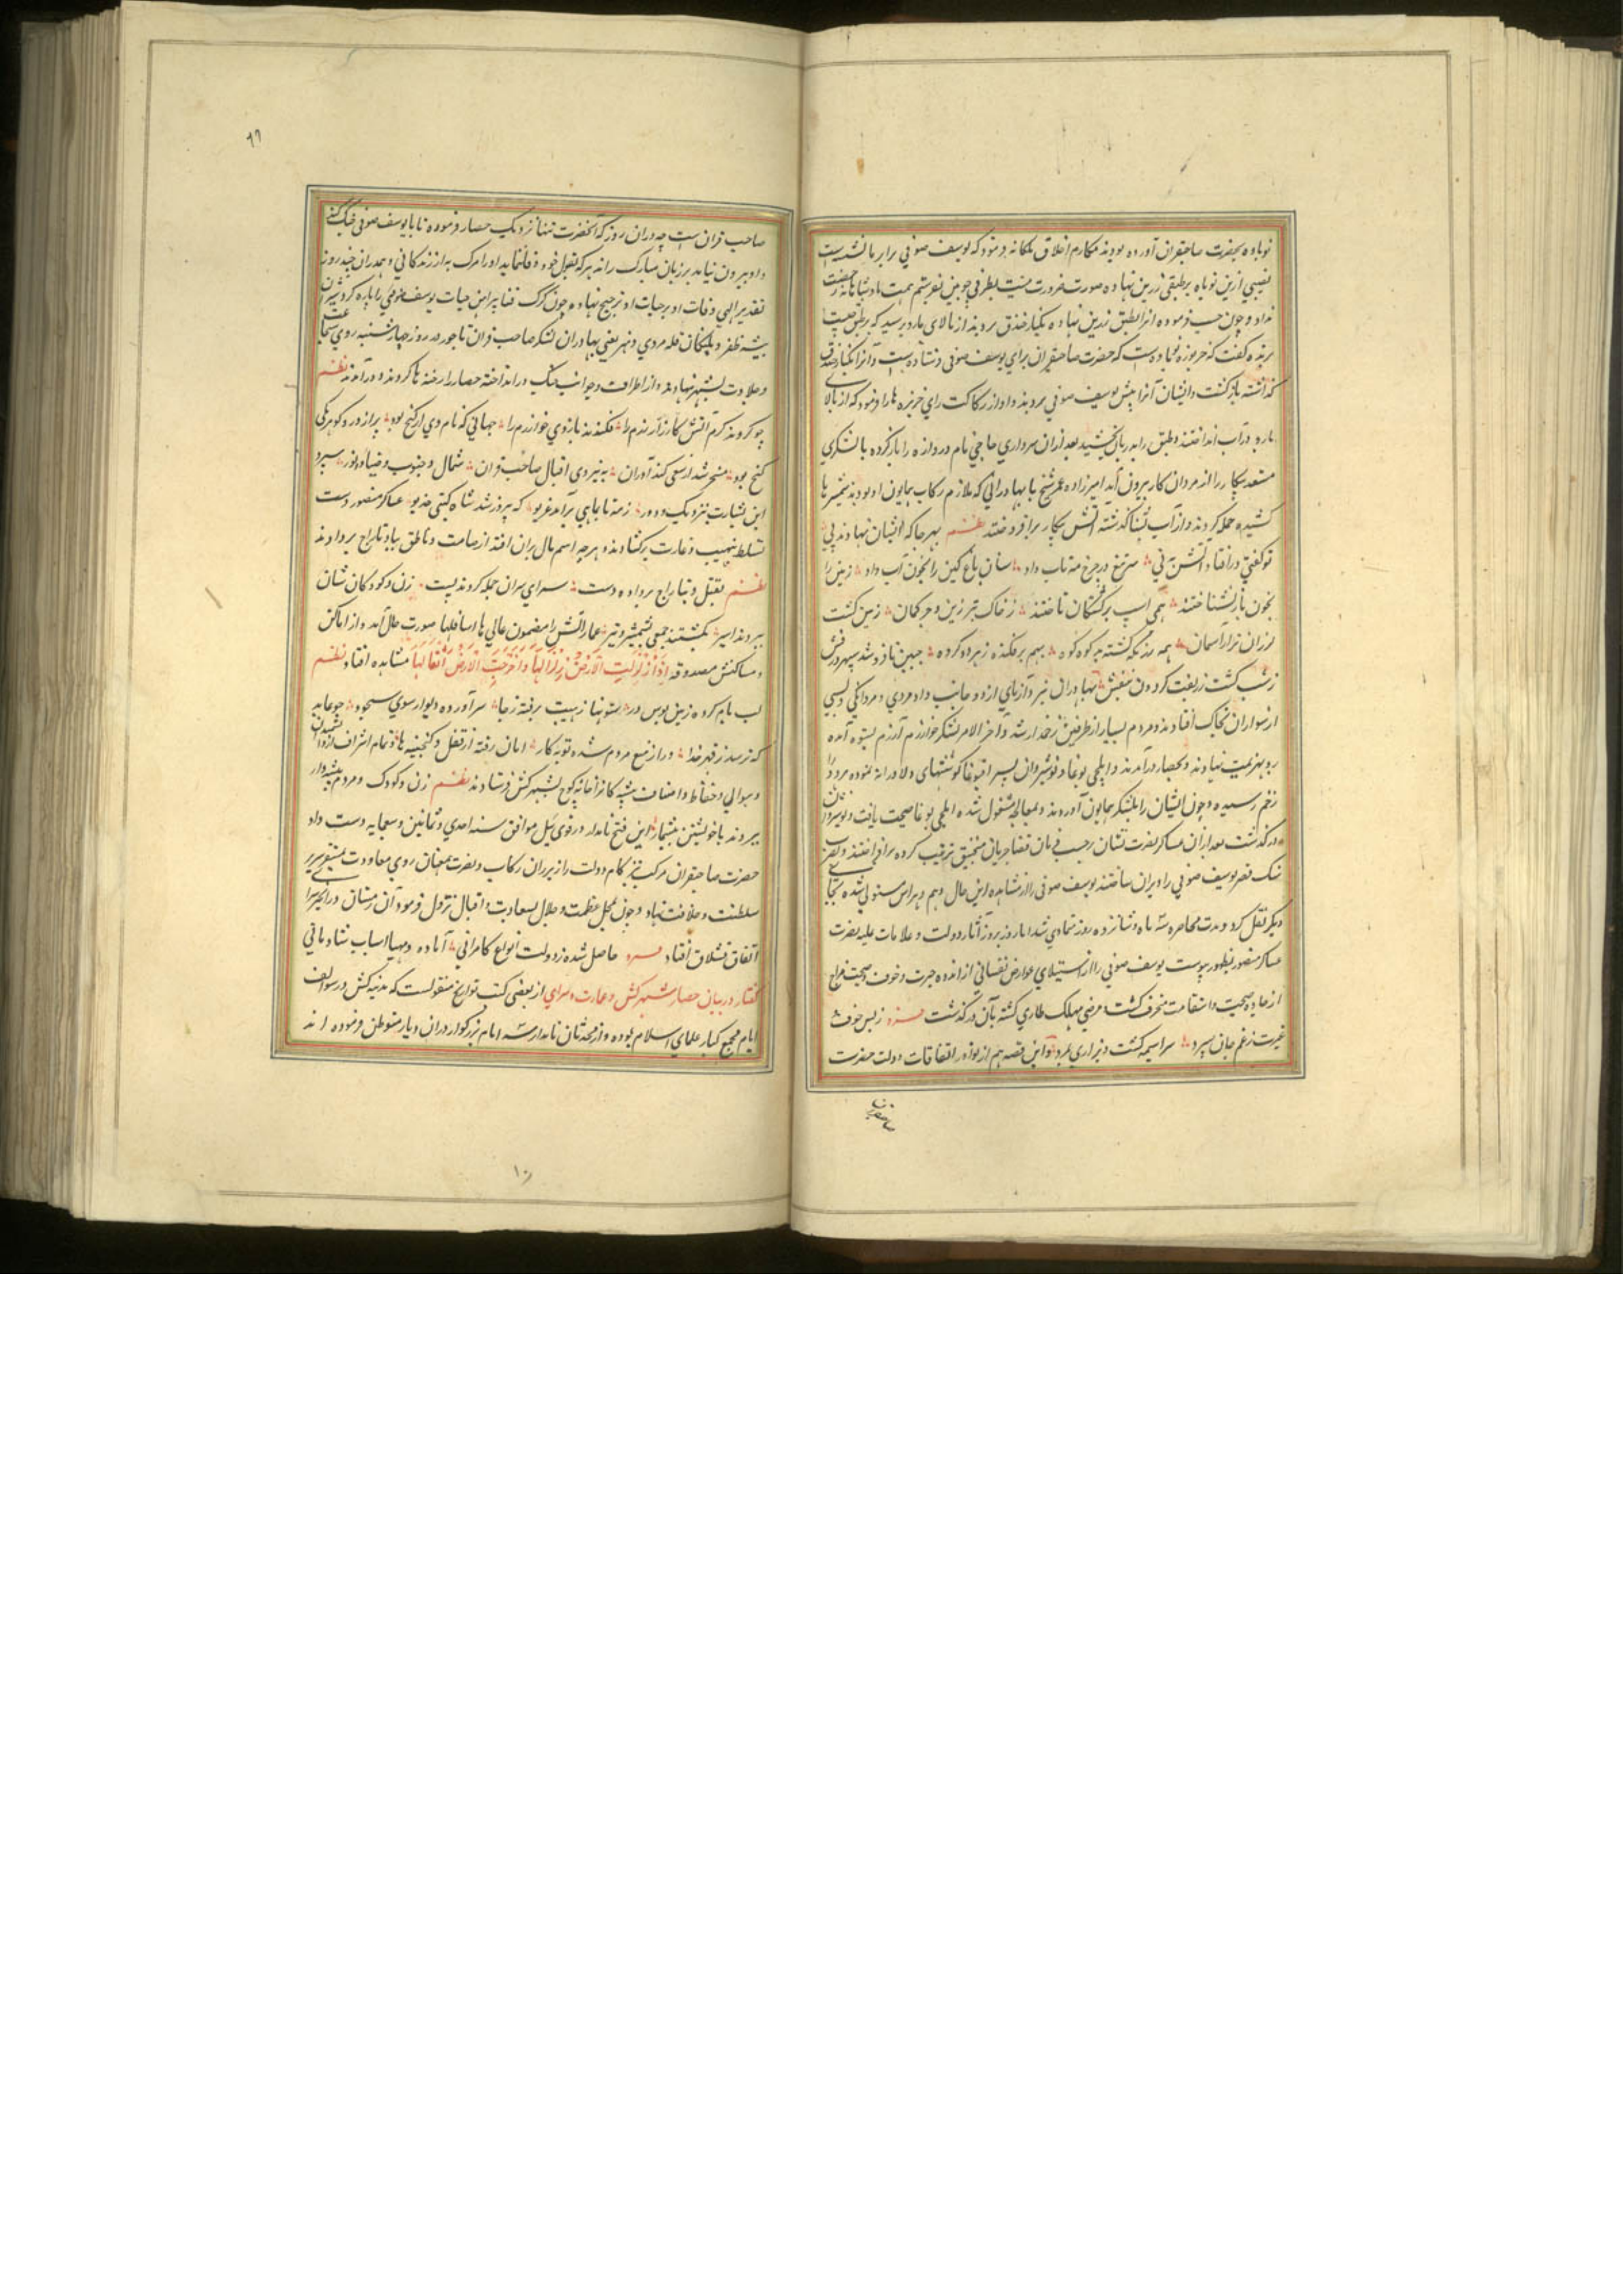 نوباده بحضرت صاحبقران آورده بودند مکارم اخلاق ملکانه فرمود که یوسف صوفی برابر ما نشسته است
نصیبی ازین نوباوه بر طبقی زرین نهاده
نداد و چون حسب فرموده آنرا بطبق زرین نهاده بکنار خندق بردند از بالای باره پرسید که برطبق چیست
برنده گفت که خربوزه نهاده است که حضرت صاحبقران برای یوسف صوفی فرستاده است و آنرا بکنار خندق
گذاشته بازگشت و ایشان آنرا پیش یوسف صوفی بردند و او از رکاکت رای خربزه‌ها را فرمود که از بالای
باره در آب انداختند و طبق را بدربان بخشید بعد از آن سرداری حاجی نام دروازه را باز کرده با لشکری
مستعد پیکار را از مردان کار بیرون آمد امیرزاده عمر شیخ با بهادرانی که ملازم رکاب همایون او بودند شمشیرها
کشیده حمله کردند و از آب شنا گذشته آتش پیکار برافروختند نظم بهر جا که ایشان نهادند پی
تو گفتی درافتاد آتش به نی سر تیغ در چرخ مه تاب داد سنان باغ کین را بخون آب داد زمین را
بخون باز نشناختند همی اسپ بر کشتگان تاختند ز خاک تبرزین و جر کمان زمین گشت
لرزان‌تر از آسمان همه رزمگه کشته بد کوه کوه بهم برفکنده ز هر دو گروه چنین تا فروشد سپهر درفش
ز شب گشت زربفت گردون بنفش بهادران نبرد آزمای از دو جانب داد مردی و مردانگی و بسی
از سواران بخاک افتادند و مردم بسیار از طرفین زخمدار شد و آخر الامر لشکر خوارزم از رزم بستوه آمده
رو بهزیمت نهادند و بحصار درآمدند و ایلچی بوغا و نوشیروان پسر اقبوغا کوششهای دلاورانه نموده هر دو را
زخم رسیده و چون ایشان را بلشکر همایون آوردند و بمعالجه مشغول شده ایلچی بوغا صحت یافت و نوشیروان
درگذشت بعد از آن عساکر نصرت نشان حسب فرمان قضا جریان منجنیق ترتیب کرده برافراختند و بضرب
سنگ قصر یوسف صوفی را ویران ساختند یوسف صوفی را از مشاهده این حال وهم و هراس مستولی شده بجای
دیگر نقل کرد و مدت محاصره سه ماه و شانزده روز تمادی شد اما روز بروز آثار دولت و علامات غلبه نصرت
عساکر منصور بظهور پیوست یوسف صوفی را از استیلای عوارض نفسانی از اندوه حیرت و خوف و صحت مزاج
از جاده صحت و استقامت منحرف گشت و مرضی مهلک طاری گشته بآن درگذشت فرد ز بس خوف
غیرت ز غم جان سپرد سراسیمه گشت و بزاری بمرد و این قصه هم از نوادر اتفاقات دولت حضرت
صاحبقران
٦٩
صاحب قرانست چه در آن روز که آنحضرت تنها نزدیک حصار فرموده تا با یوسف صوفی جنگ کند
و او بیرون نیامد بر زبان مبارک رانده هر که بقول خود وفا ننماید او را مرگ به از زندگانی و هم در آن چند روز
تقدیر الهی وفات او بر حیات او ترجیح نهاده چون گرگ فنا پیراهن حیات یوسف صوفی را پاره کرد شیران
بیشه ظفر و پلنگان قله مردی و هنر یعنی بهادران لشکر صاحب قران تاجور در روز چهارشنبه روی شجاعت
و جلادت بشهر نهادند و از اطراف و جوانب جنگ درانداخته حصار را رخنه‌ها کردند و درآمدند نظم
چو کردند گرم آتش کارزار رزم را فکندند بازوی خوارزم را جهانی که نام وی ارکنج بود پر از در و گوهر یکی
گنج بود مسخر شد از سعی کندآوران به نیروی اقبال صاحب قران شمال و جنوب و صبا و دبور سپرد
این بشارت بنزدیک و دور زمه تا بماهی برآمد غریو که پیروز شد شاه گیتی خدیو عساکر منصور دست
تسلط بنهیب و غارت برگشادند و هرچه اسم مال بر آن افتد از صامت و ناطق بباد تاراج بردادند
نظم بقتل و بتاراج بردا‌ده دست سرای سران جمله کردند پست زن و کودکان شان
ببردند اسیر بکشتند جمعی بشمشیر و تیر عماراتش را مضمون عالیها سافلها صورت حال آمد و از اماکن
و مساکنش مصدوقه إِذَا زُلْزِلَتِ الْأَرْضُ زِلْزَالَهَا وَأَخْرَجَتِ الْأَرْضُ أَثْقَالَهَا مشاهده افتاد نظم
لب بام کرده زمین بوس در ستونها ز هیبت برفته ز جا سر آورده دیوار سوی سجود چو عابد
که ترسد ز قهر خدا در از منع مردم شده توبه کار امان رفته از قفل و گنجینه‌ها و تمام اشراف از دانشمندان
و موالی و حفاظ و اصناف پیشه کاران را خانه کوچ بشهر کش فرستادند نظم زن و کودک و مردم پیشه‌وار
ببردند با خویشتن بیشمار این فتح نامدار در قوی ییل موافق سنه احدی و ثمانین و سبعمایه دست داد
حضرت صاحبقران مرکب تیزگام دولت را زیر ران رکاب و نصرت همعنان روی معاودت بمستقر سریر
سلطنت و خلافت نهاد و چون بمحل عظمت و جلال بسعادت و اقبال نزول فرمود آن زمستان در زنجیرسرای
اتفاق قشلاق افتاد فرد حاصل شده ز دولت انواع کامرانی آماده و مهیا اسباب شادمانی
گفتار در بیان حصار شهر کش و عمارت سرای از بعضی کتب تواریخ منقولست که مدینه کش در سوالف
ایام مجمع کبار علمای اسلام بوده و از محدثان نامدار سه امام بزرگوار در آن دیار متوطن فرموده اند